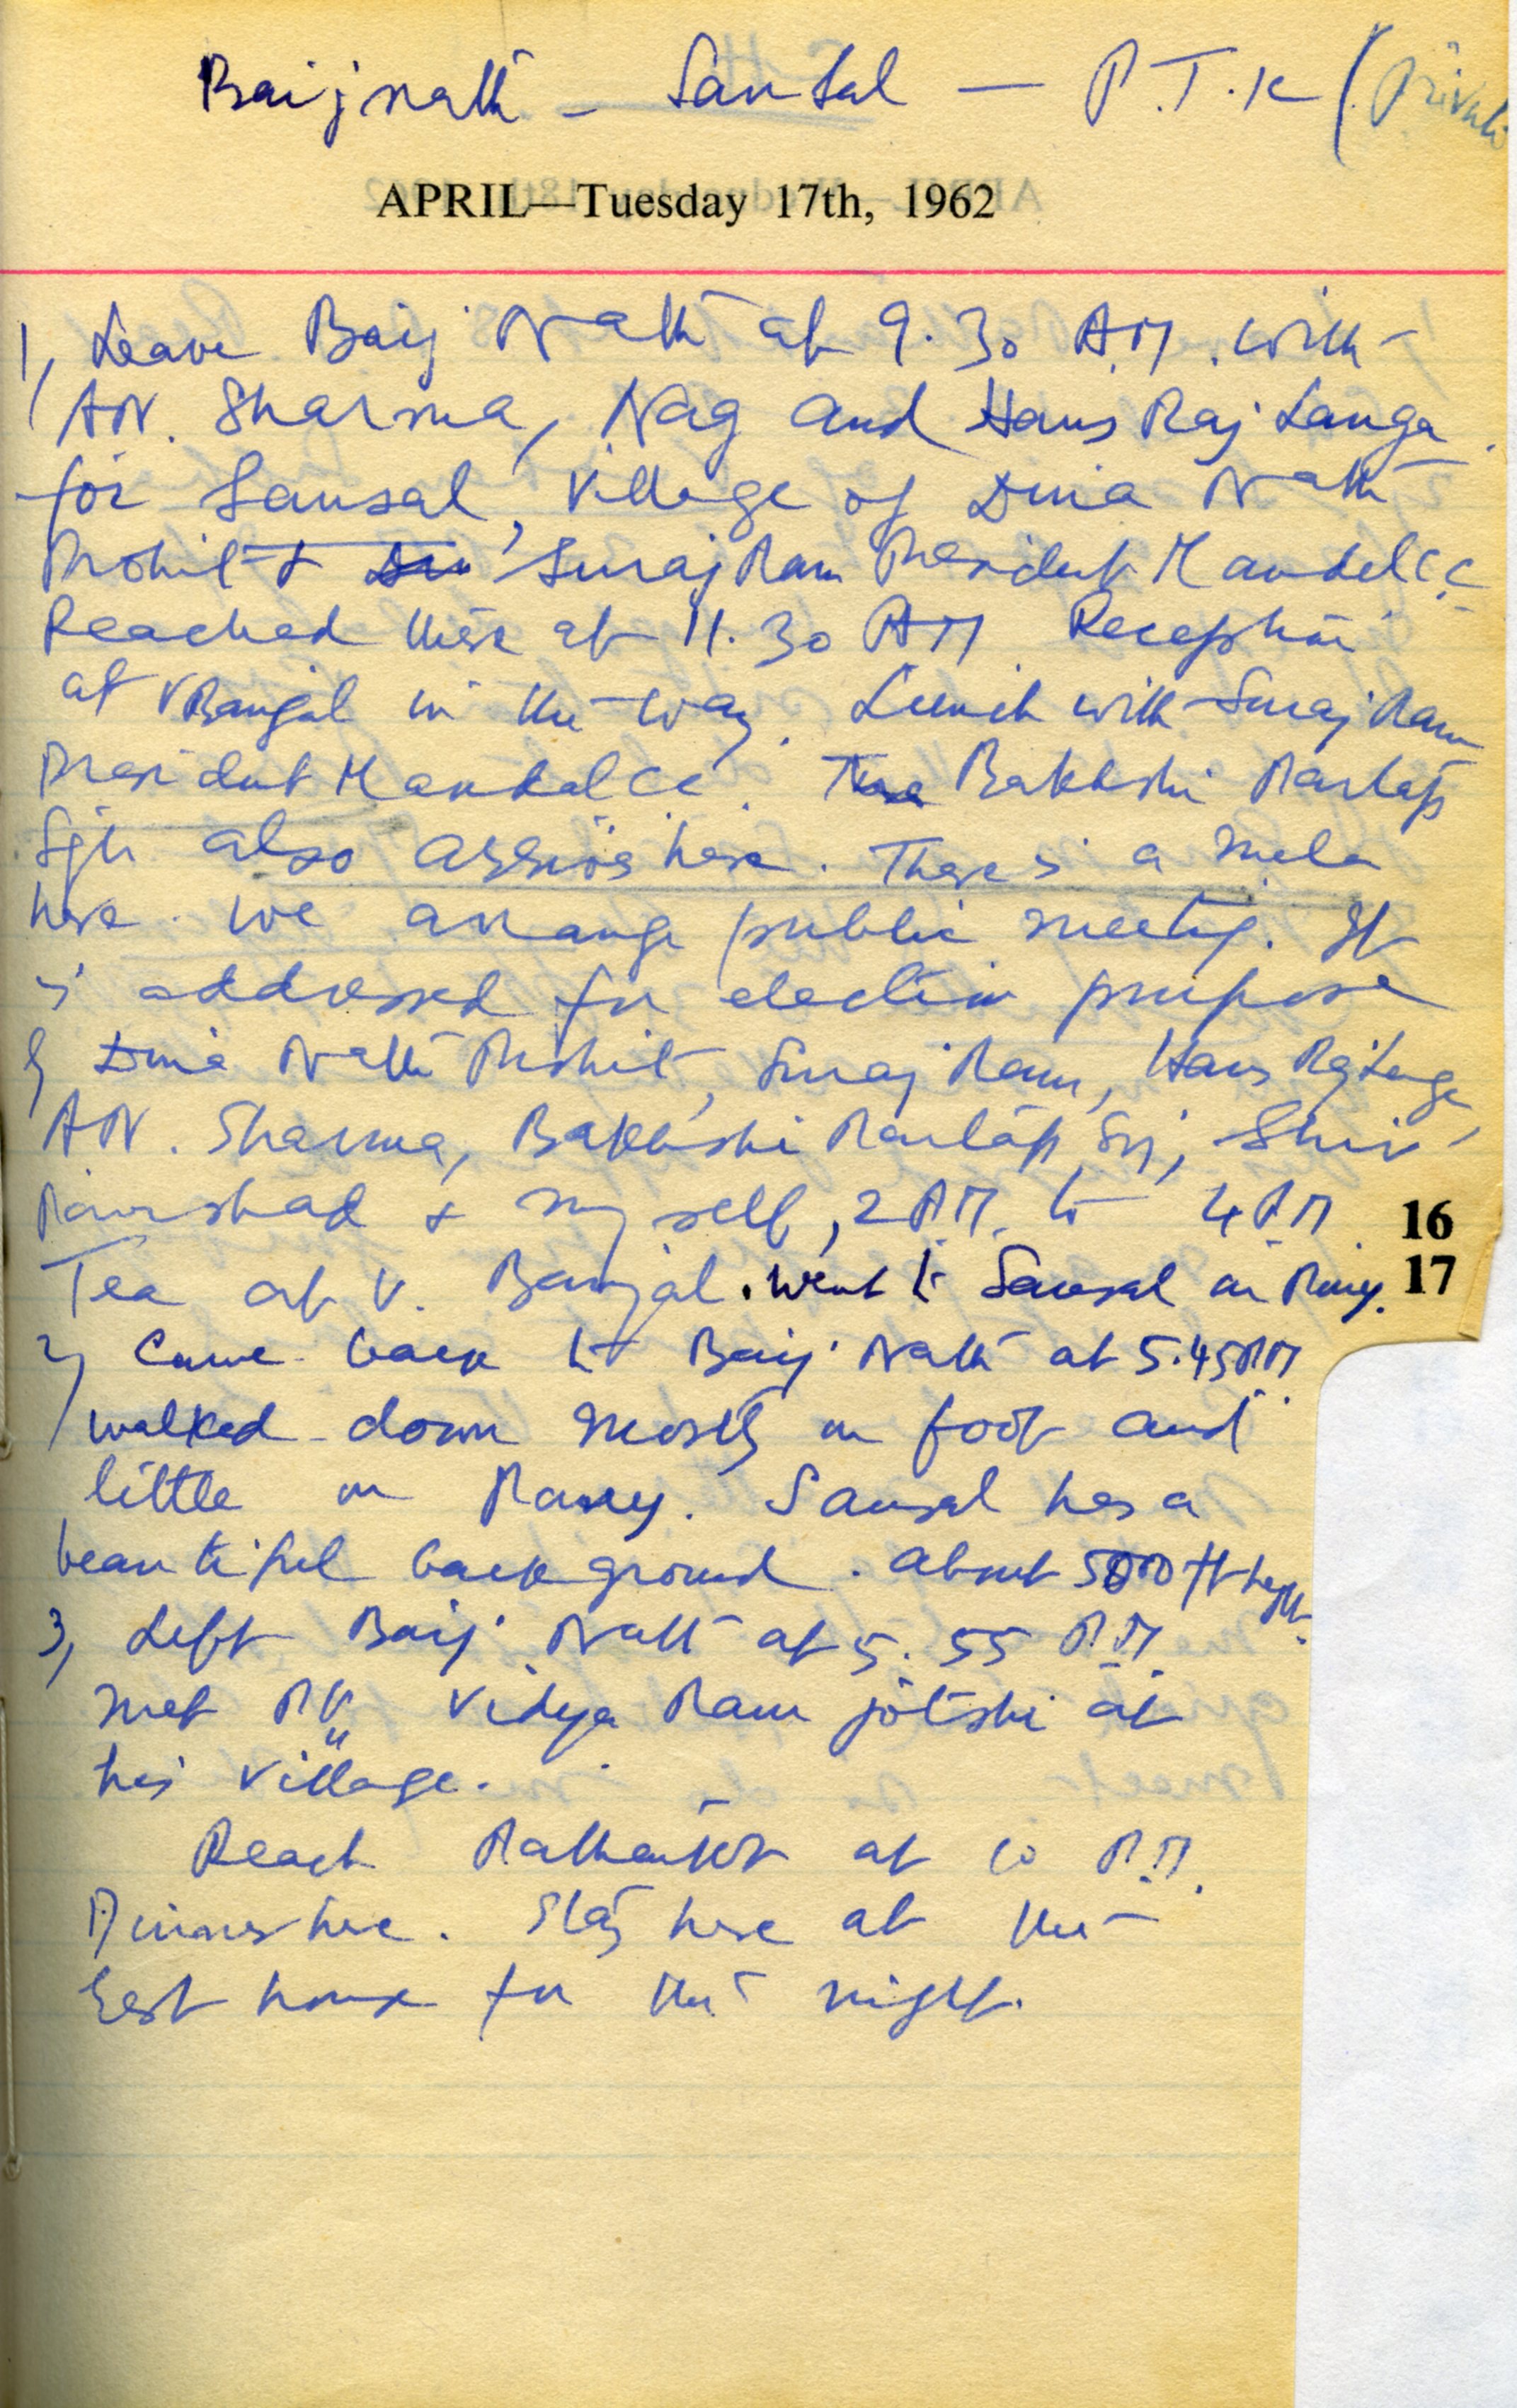 Baijnath - Sansal - P.T.K (Private
APRIL—Tuesday 17th, 1962
1, Leave Baij Nath at 9.30 A.M. with
A.N. Sharma, Nag and Hans Raj Langa
for Sansal, village of Dina Nath
Prohit & Suraj Ram President Mandal C.C.
Reached there at 11.30 AM Reception
at V Banjal in the way. Lunch with Suraj Ram
President Mandal CC. Bakhshi Partap
Sgh also arrive here. There is a mela
here. We arrange public meeting. It
is addressed for election purpose
by Dina Nath Prohit, Suraj Ram, Hans Raj Langa,
A.N. Sharma, Bakhshi Partap Sgh, Shiv
Parshad & myself, 2 P.M. to 4 P.M 16
Tea at V. Banjal. Went to Sansal on Pony. 17
2, Came back to Baij Nath at 5.45 P.M.
walked down mostly on foot and
little on Pony. Sansal has a
beautiful back ground. about 5000 ft height.
3, Left Baij Nath at 5.55 P.M.
met Vidya Ram jotshi at
his village.
Reach Pathankot at 10 P.M.
Dinner here. Stay here at the
rest house for the night.